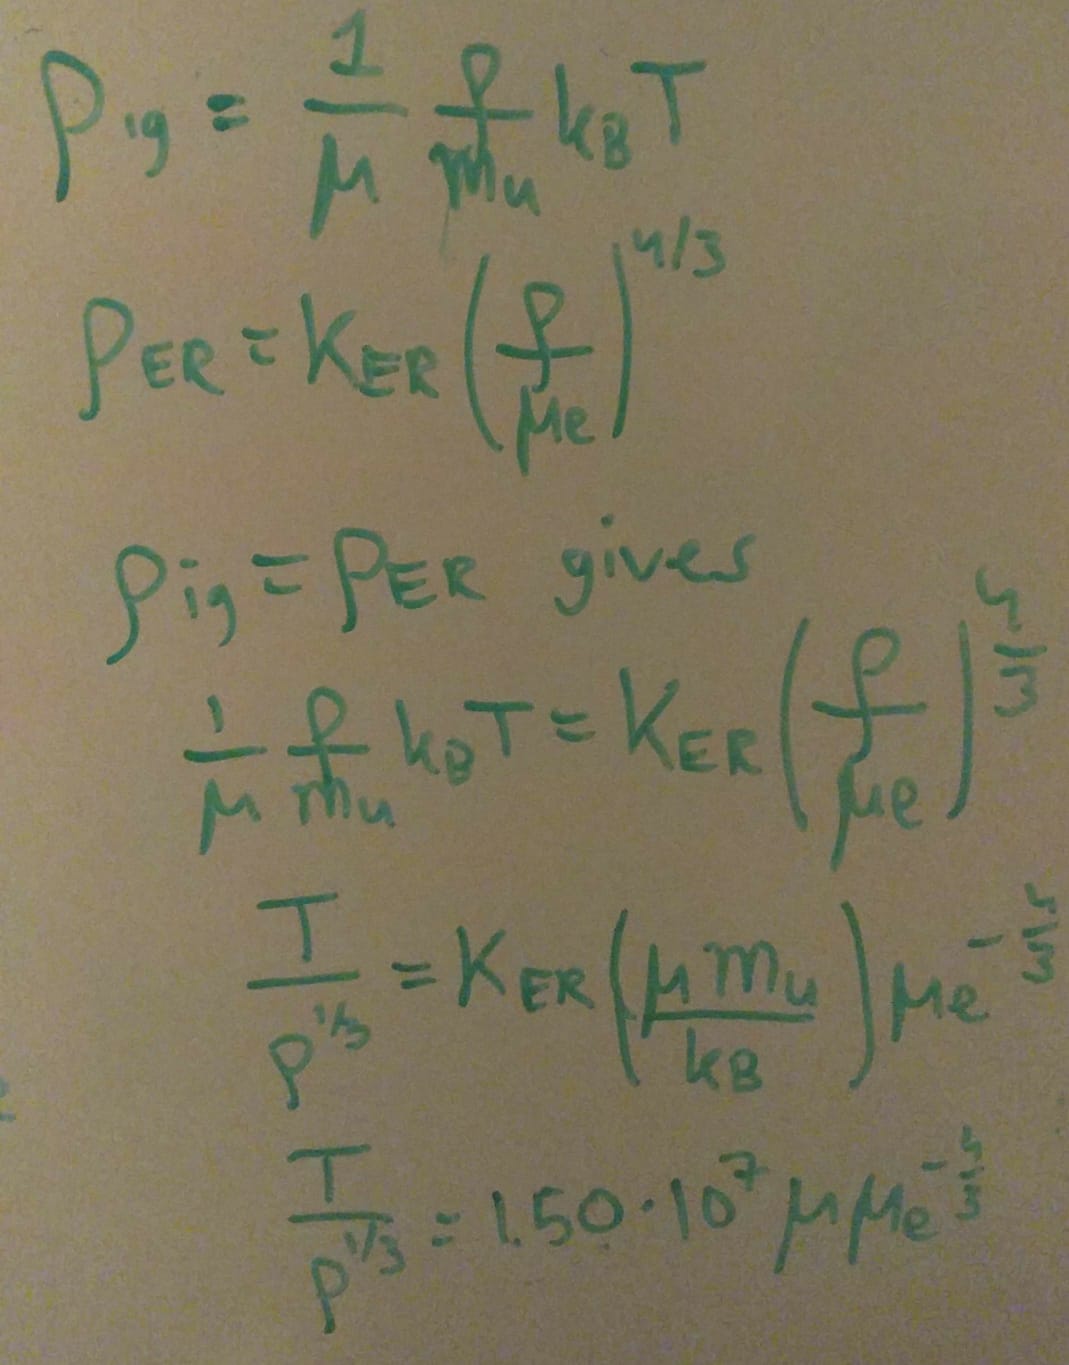 P_ig = 1/μ ρ/m_u k_B T
P_ER = K_ER (ρ/μe)^4/3
P_ig = P_ER gives
1/μ ρ/m_u k_B T = K_ER (ρ/μe)^4/3
T/ρ^1/3 = K_ER (μ m_u/k_B) μe^-4/3
T/ρ^1/3 = 1.50·10^7 μ μe^-4/3